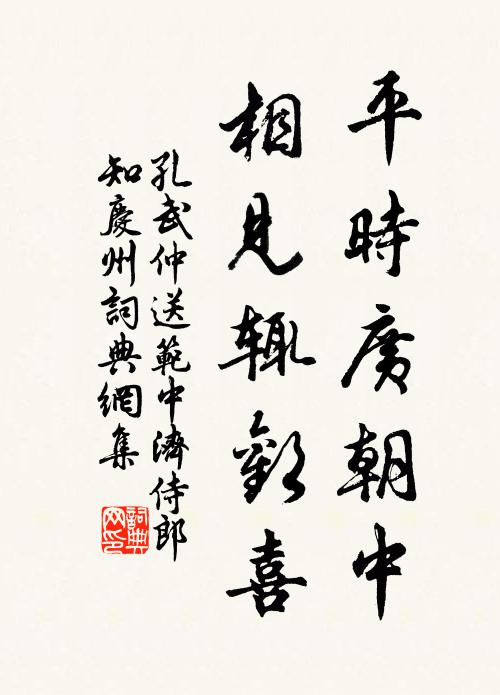 平時廣朝中
相見輒歡喜
孔武仲送範中濟侍郎
知慶州詞典網集
詞典
网印